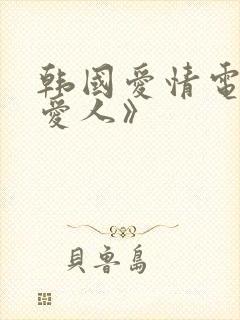 韩國愛情電
愛人》
貝魯島